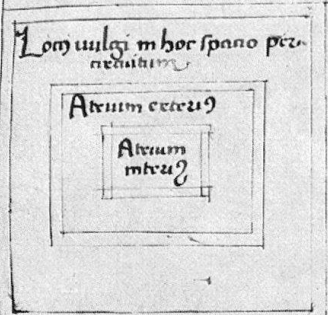 Locꝰ uulgi in hoc spacio per
circuitum
Atrium exteriꝰ
Atrium
interiꝰ